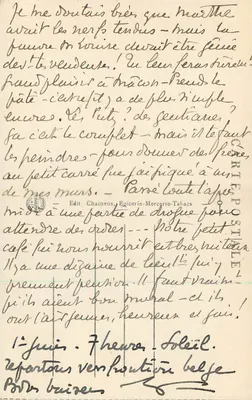 Je me doutais bien que Marthe
avait les nerfs tendus - mais la
pauvre Mn Louise devait être gênée
devt la vendeuse! Tu leur feras
grand plaisir à Mâcon - Prends le
pâté - c'est ce qu'il y a de plus simple
encore. Les des gentianes!
Ça c'est le complet - mais il le faut
les peindre - pour donner des
au petit carré que j'ai fixé à un
de mes murs. - Passé toute l'après
midi à une partie de drogue pour
attendre des ordres --- Notre petit
café lui nous nourrit est très militaire
Il y a une dizaine de lieutts qui y
prennent pension. Il faut vraiment
qu'ils aient bon moral - et ils
ont l'air jeunes, heureux et gais!
1er Juin - 7 heures - Soleil.
repartons vers frontière belge
Bons baisers
CARTE POSTALE
Edit. Chanteau, Epicerie-Mercerie-Tabacs